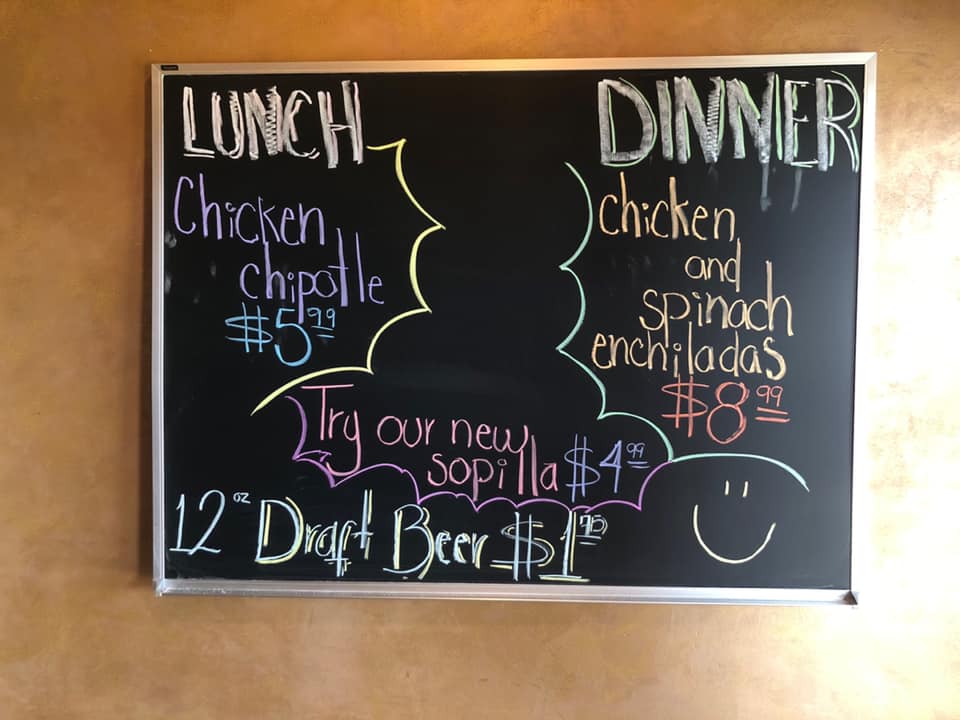 LUNCH
Chicken
chipotle
$5.99
DINNER
chicken
and
spinach
enchiladas
$8.99
Try our new
sopilla $4.99
12 oz Draft Beer $1.75